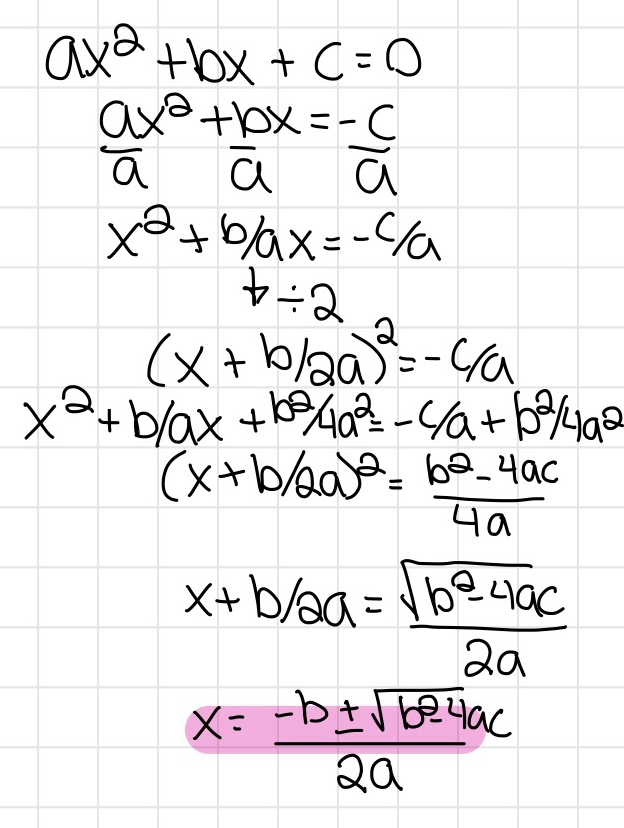 ax² + bx + c = 0
ax²/a + bx/a = -c/a
x² + b/ax = -c/a
↓ ÷2
(x + b/2a)² = -c/a
x² + b/ax + b²/4a² = -c/a + b²/4a²
(x + b/2a)² = b² - 4ac / 4a
x + b/2a = √b² - 4ac / 2a
x = -b ± √b² - 4ac / 2a